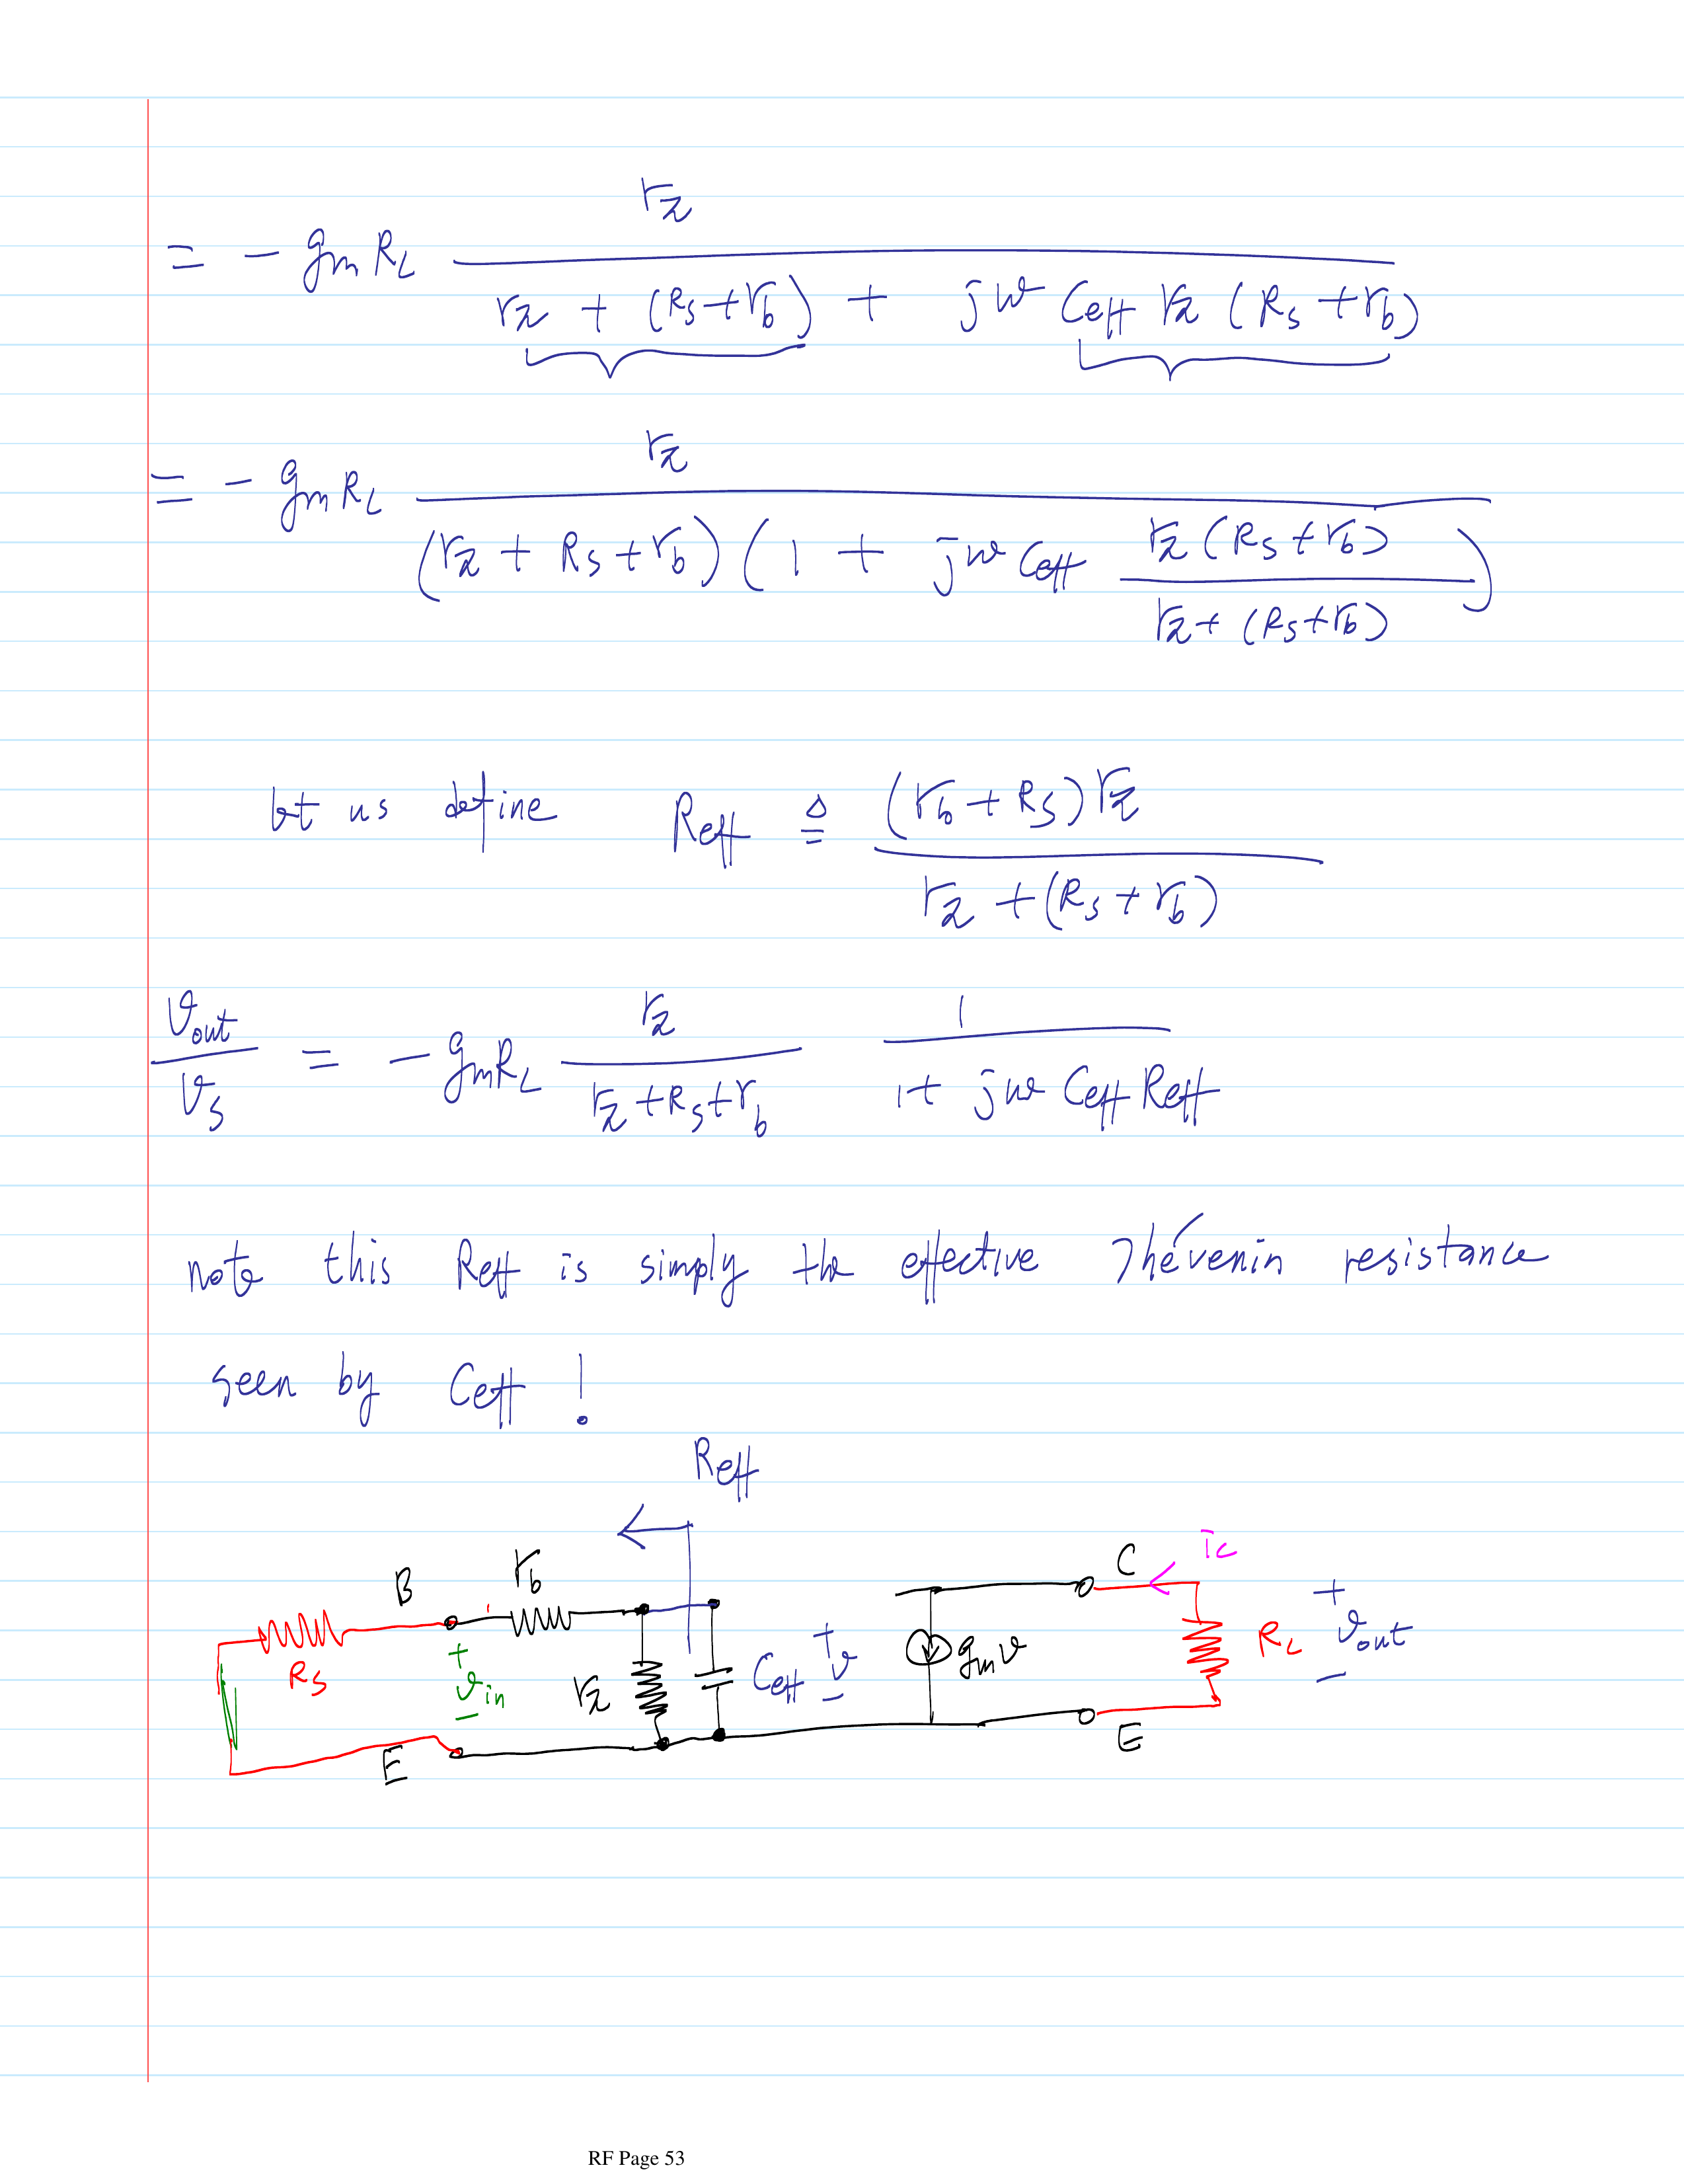 = - gm RL rπ / (rπ + (Rs + rb) + jω Ceff rπ (Rs + rb))
= - gm RL rπ / ((rπ + Rs + rb) (1 + jω Ceff rπ (Rs + rb) / (rπ + (Rs + rb))))
let us define Reff ≜ (rb + Rs) rπ / (rπ + (Rs + rb))
vout / vs = - gm RL rπ / (rπ + Rs + rb) 1 / (1 + jω Ceff Reff)
note this Reff is simply the effective Thévenin resistance
seen by Ceff !
Reff
B rb C ic
Rs + vin - rπ Ceff + v - gmv RL + vout -
E E
RF Page 53